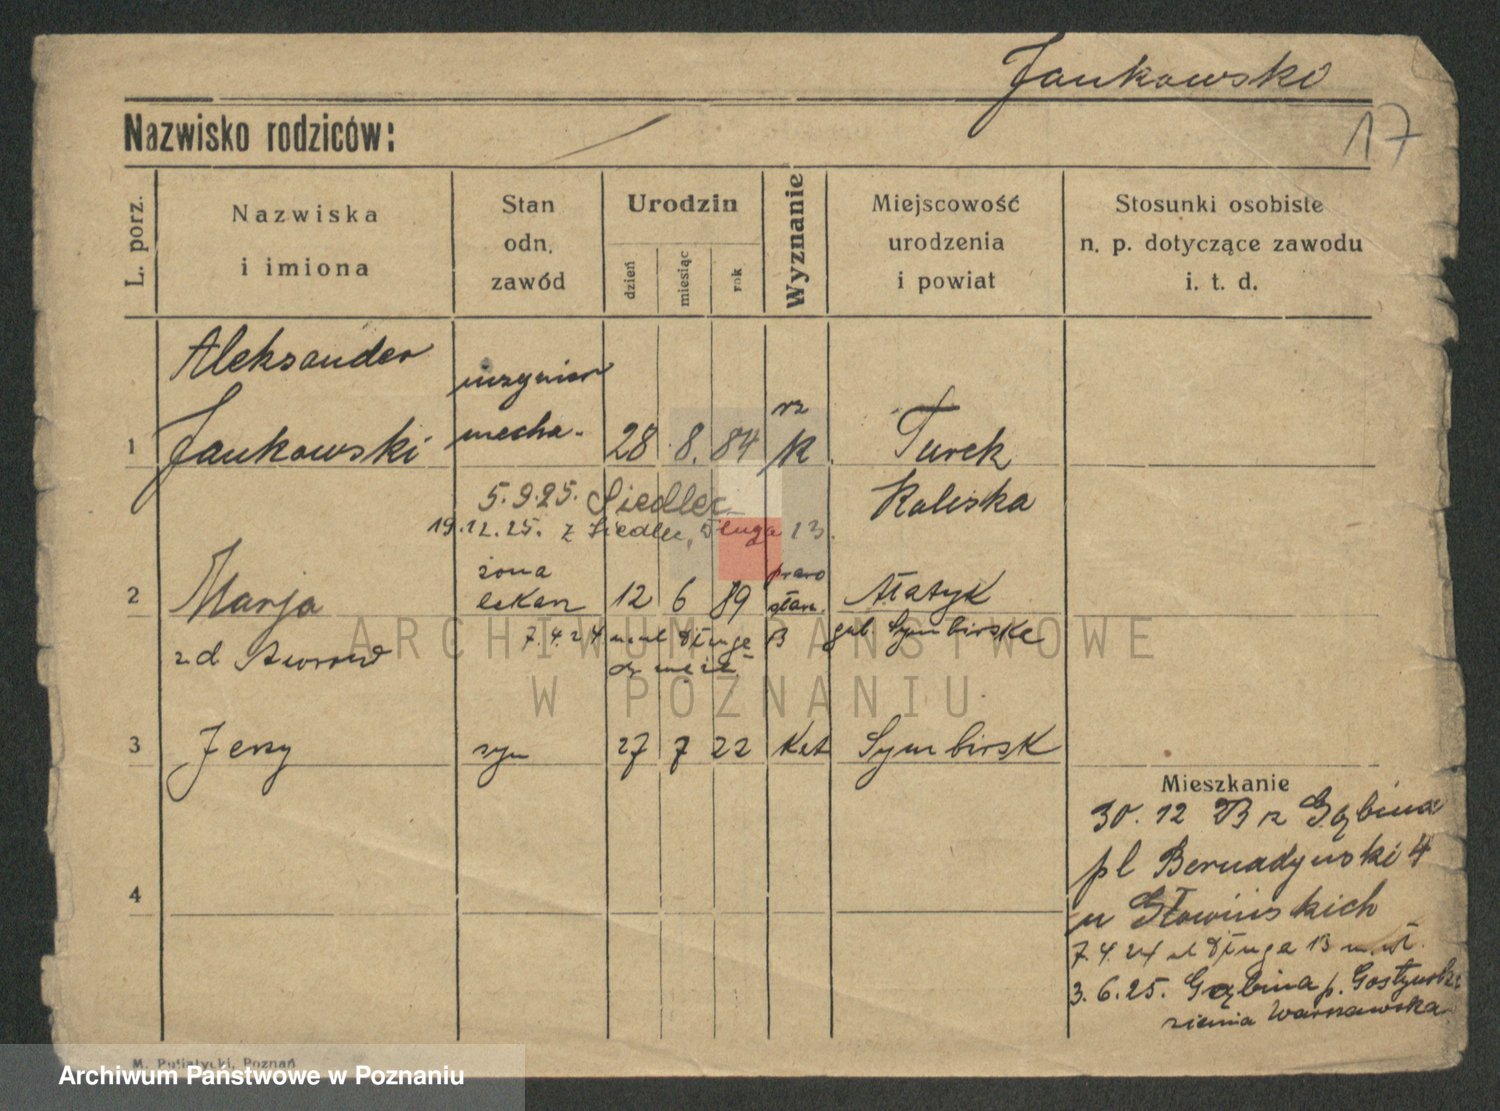 Jankowski
17
Nazwisko rodziców:
L. porz.
Nazwiska
i imiona
Stan
odn.
zawód
Urodzin
dzień
miesiąc
rok
Wyznanie
Miejscowość
urodzenia
i powiat
Stosunki osobiste
n. p. dotyczące zawodu
i. t. d.
Aleksander
1 Jankowski
inżynier
mecha-
28 8. 84
rz
k
Turek
Kaliska
5.9.25. Siedlec
19.12.25. z Siedlec, Długa 13.
2 Marja
żona
lekarz
12 6 89
prawo
sław.
Ałatyk
gub Symbirske
7.4.24 Długa 13
z d
3 Jerzy
syn
27 7 22
Kat
Symbirsk
4
Mieszkanie
30. 12 23 z Gąbina
pl Bernadyński 4
u Głowińskich
7.4.24 ul Długa 13
3.6.25. Gąbina p. Gostyński
ziemia Warszawska
ARCHIWUM PAŃSTWOWE
W POZNANIU
M. Putiatycki, Poznań
Archiwum Państwowe w Poznaniu